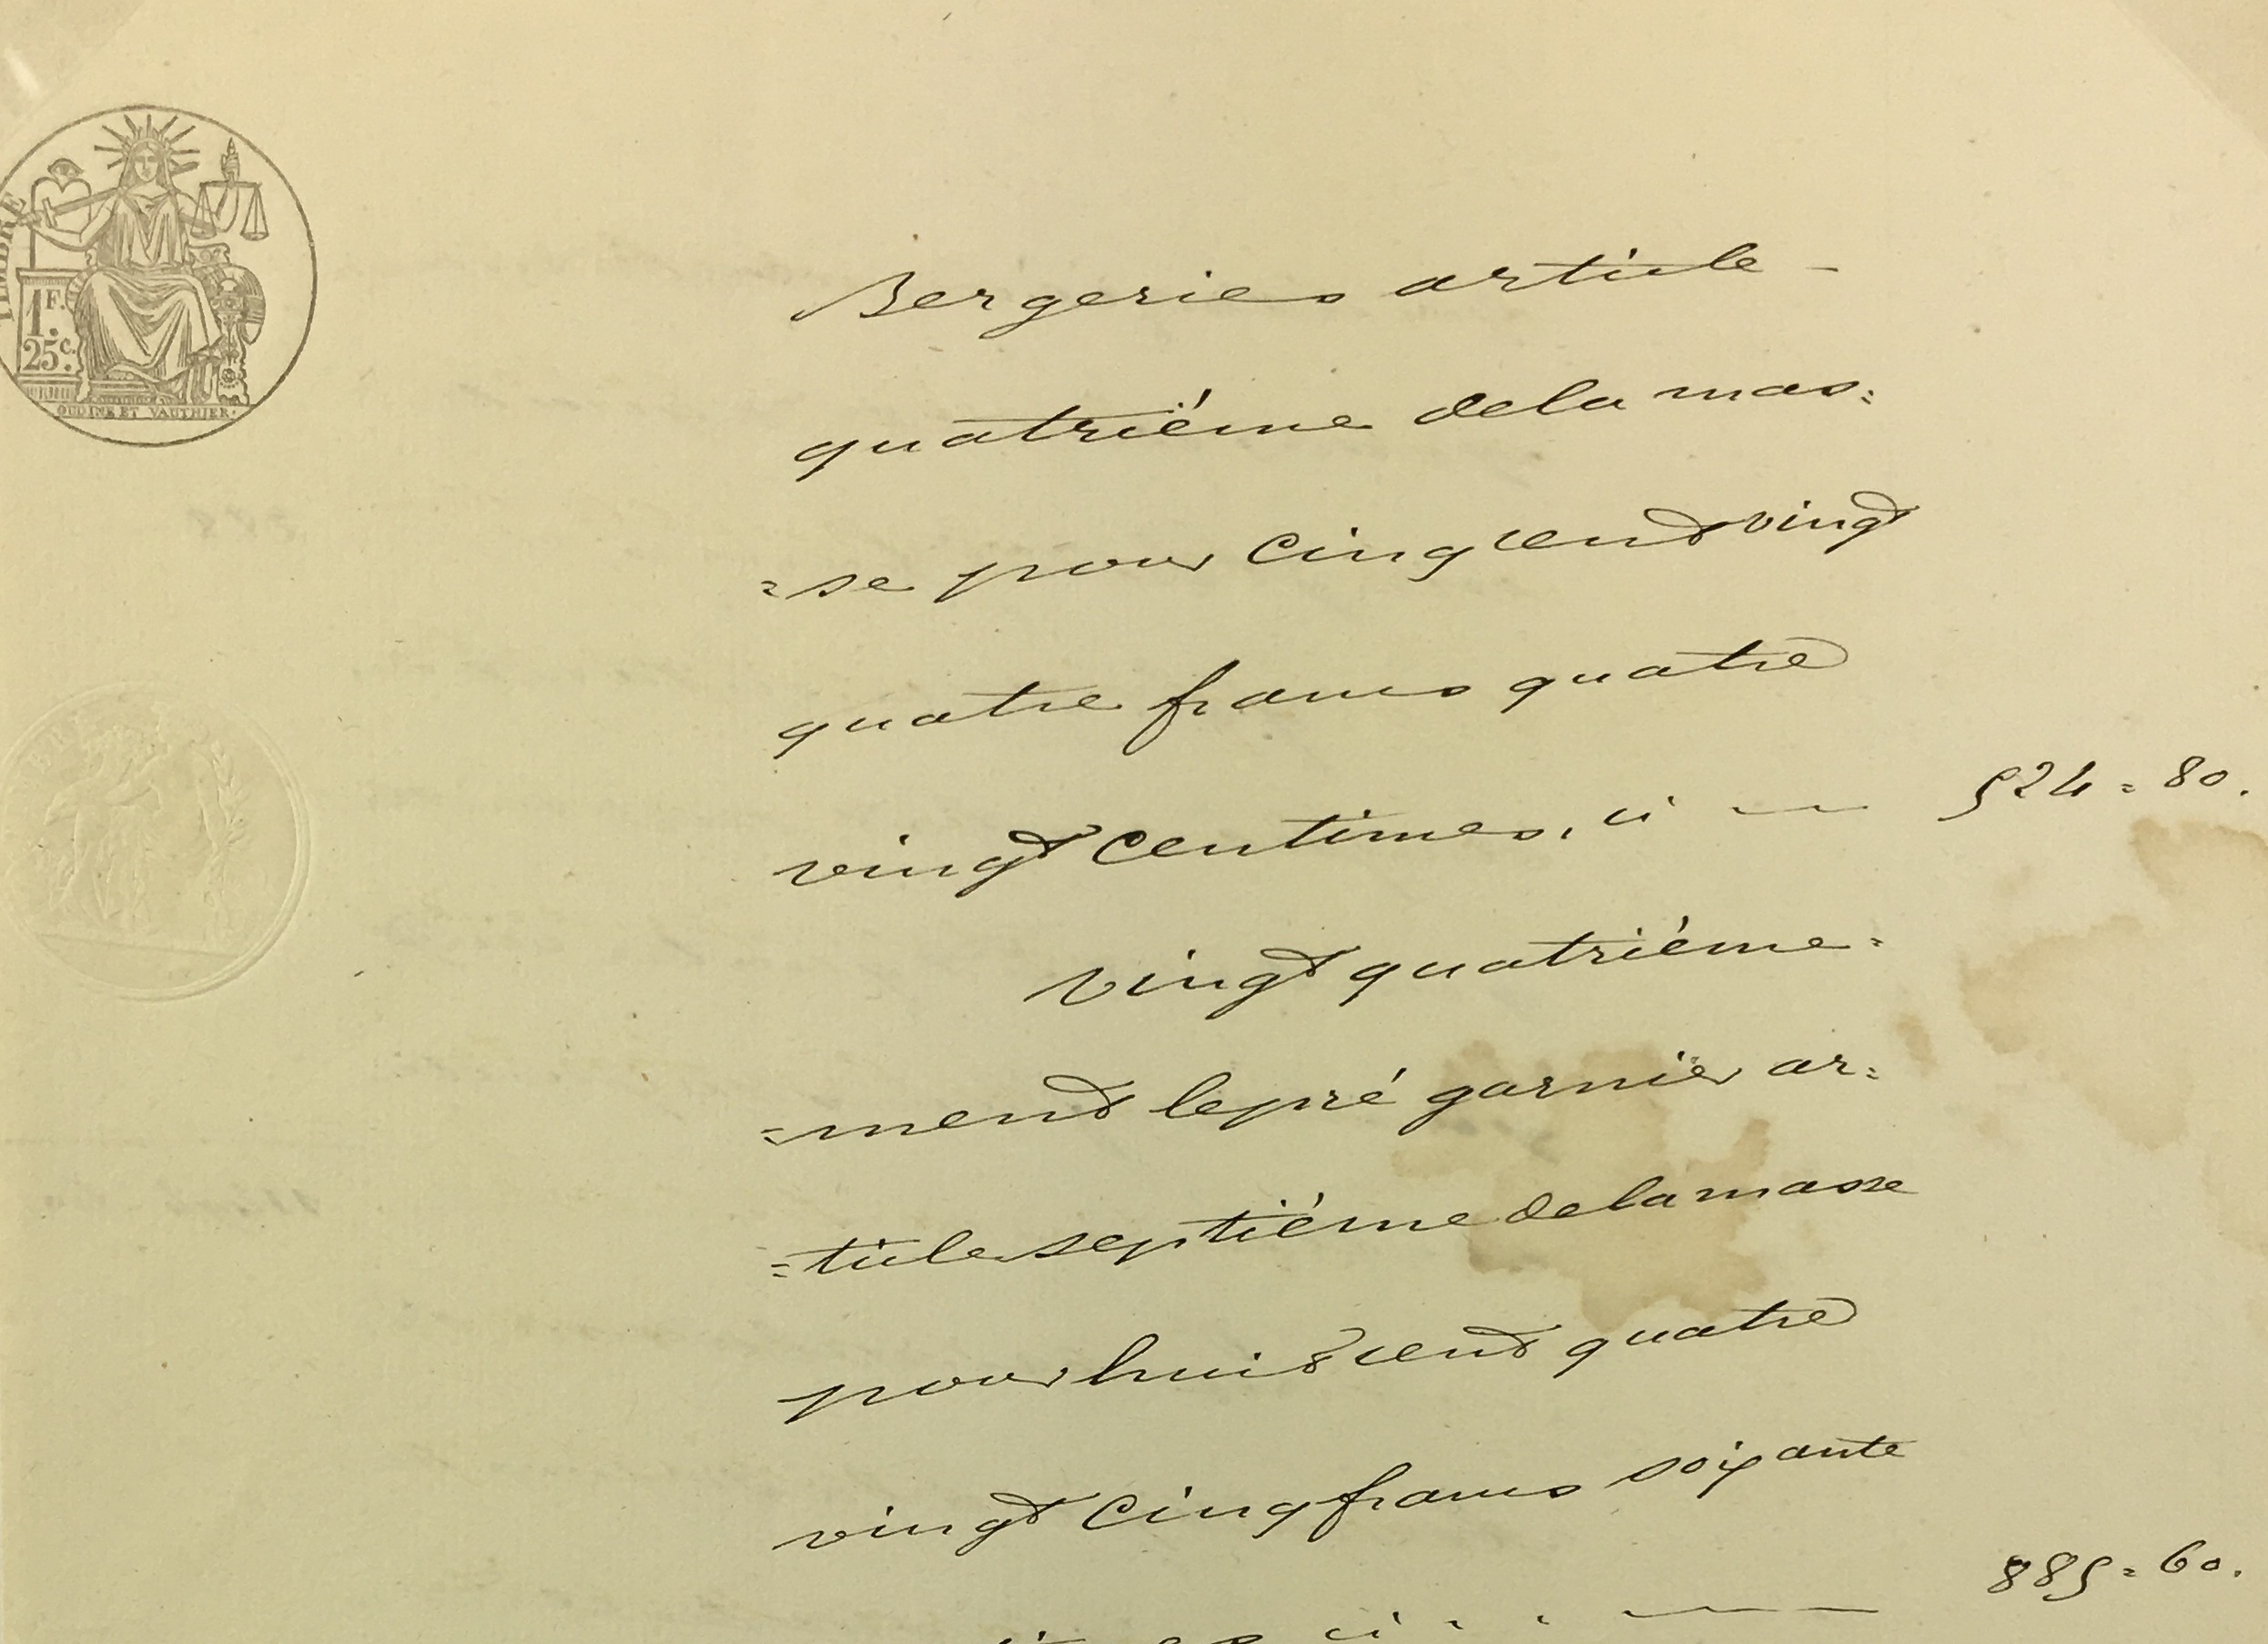 TIMBRE
1F.
25c.
OUDINE ET VAUTHIER.
Bergeries article -
quatrième dela mas=
=se pour Cinq cent vingt
quatre francs quatre
vingt Centimes, ci — 524 = 80.
Vingt quatrième=
=ment lepré garnier ar=
=ticle septième delamasse
pour huit cent quatre
vingt Cinq francs soixante
ci 885 = 60.